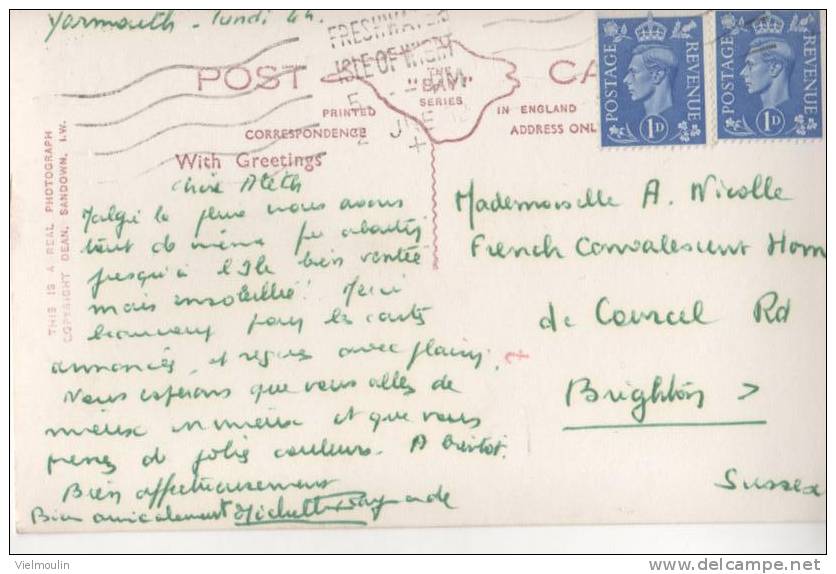 Yarmouth - lundi
FRESHWATER
ISLE OF WIGHT
5 - PM
2 JUNE
POST CA
THE
"BAY"
SERIES
PRINTED IN ENGLAND
CORRESPONDENCE ADDRESS ONL
With Greetings
THIS IS A REAL PHOTOGRAPH
COPYRIGHT DEAN, SANDOWN, I.W.
POSTAGE REVENUE
1D
POSTAGE REVENUE
1D
Chère
Malgré la pluie nous avons
tout de même pu
jusqu'à l'Ile bien ventée
mais ensoleillée! Merci
beaucoup pour les cartes
annoncées, et reçues avec plaisir.
Nous espérons que vous allez de
mieux en mieux et que vous
prenez de jolies couleurs. A bientôt.
Bien affectueusement
Bien amicalement
Mademoiselle A. Nicolle
French Convalescent Hom
de Courcel Rd
Brighton
Sussex
Vielmoulin
delcampe.net